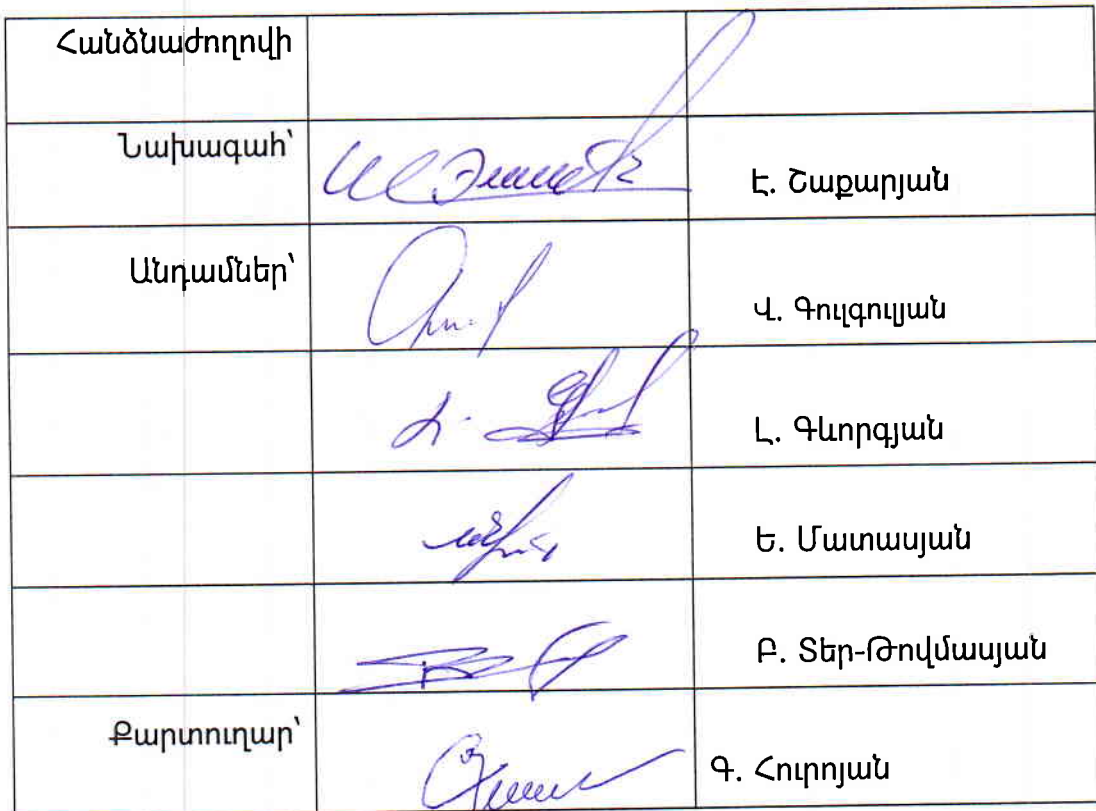 Հանձնաժողովի
Նախագահ՝
Է. Շաքարյան
Անդամներ՝
Վ. Գուլգուլյան
Լ. Գևորգյան
Ե. Մատասյան
Բ. Տեր-Թովմասյան
Քարտուղար՝
Գ. Հուրոյան